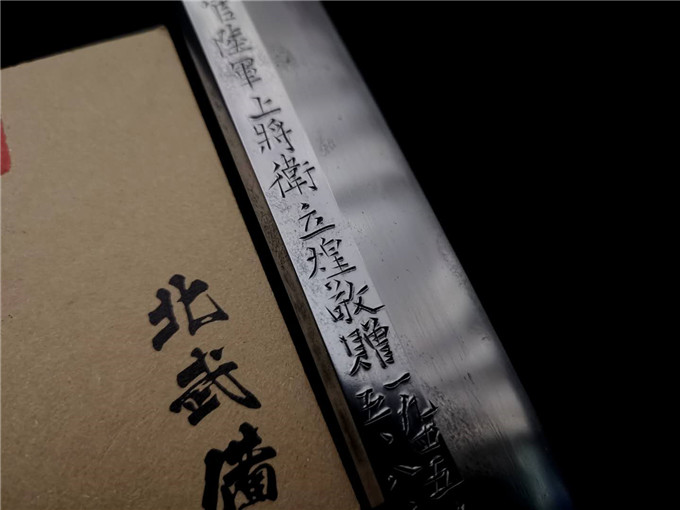 官陸軍上將衛立煌敬贈
一九五五
五、八
北武備